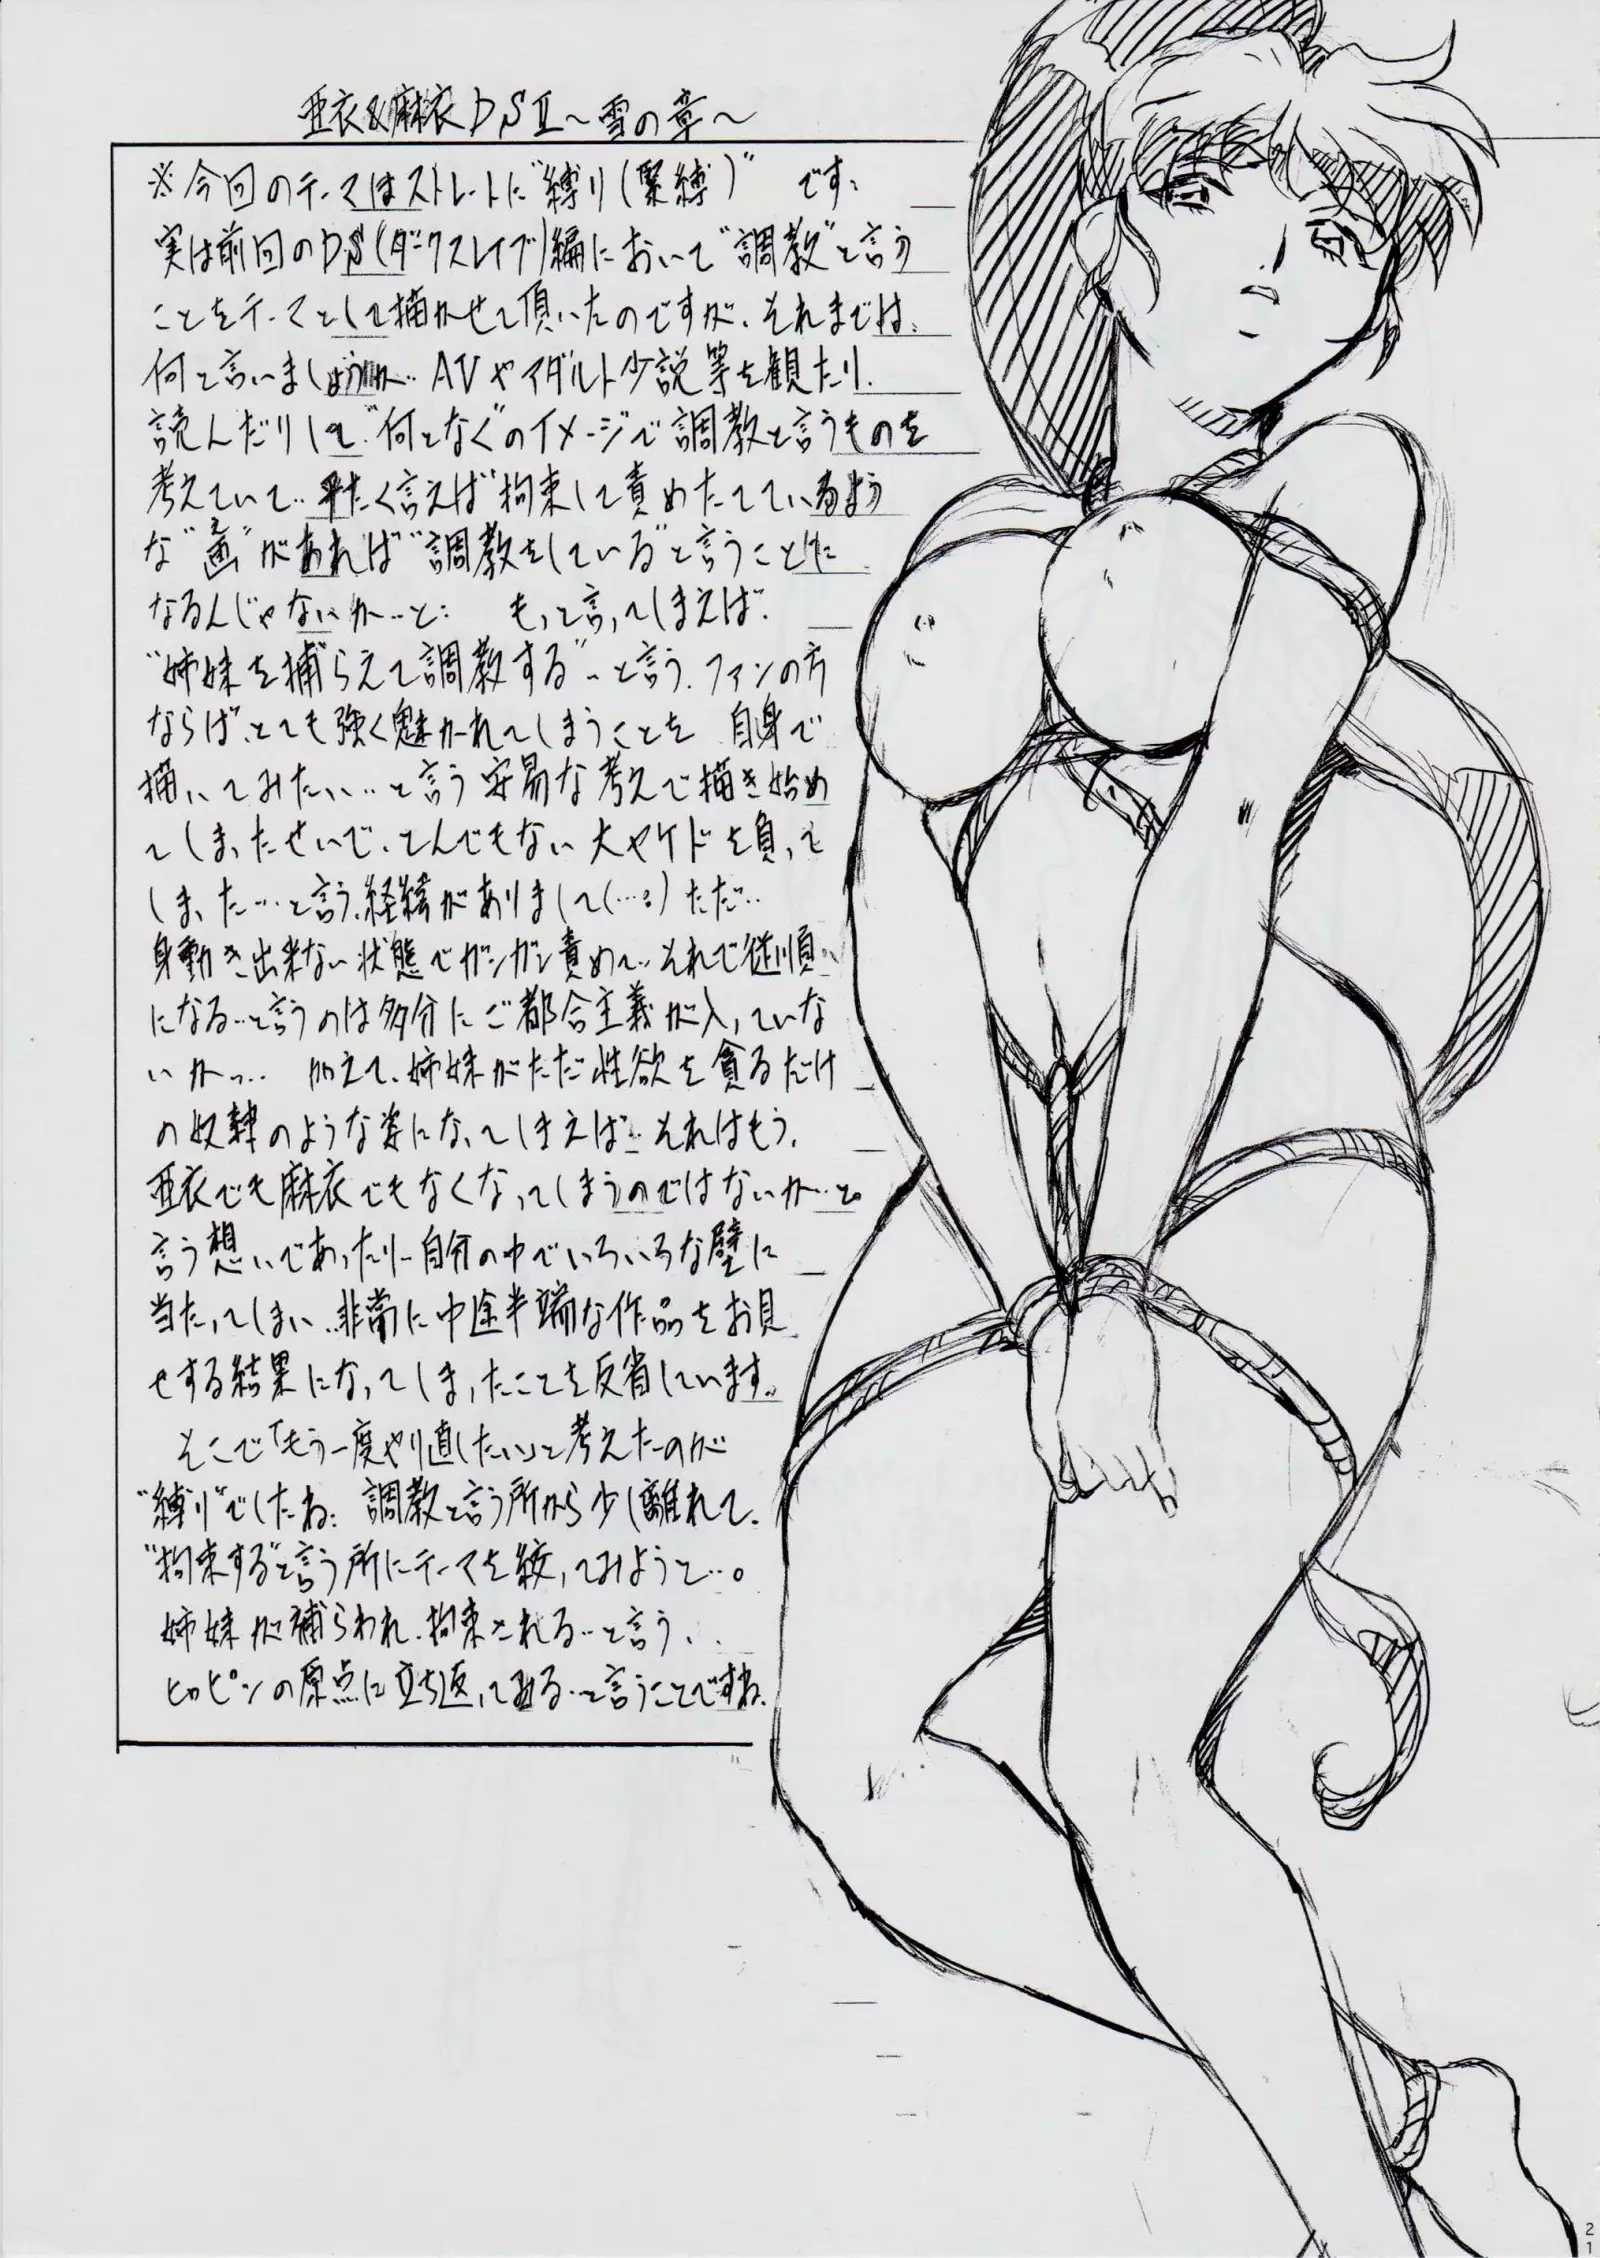 亜衣&麻衣DSⅡ～雪の章～
※今回のテーマはストレートに"縛り(緊縛)" です:
実は前回のDS(ダークスレイブ)編において"調教"と言う
ことをテーマとして描かせて頂いたのですが、それまでは、
何と言いましょうか‥AVやアダルト小説等を観たり、
読んだりして"何となく"のイメージで調教と言うものを
考えていて‥平たく言えば"拘束して責めたてているよう
な"画"があれば"調教をしている"と言うことに
なるんじゃないか‥と: もっと言ってしまえば、
"姉妹を捕らえて調教する"‥と言う、ファンの方
ならば、とても強く魅かれてしまうことを 自身で
描いてみたい‥と言う安易な考えで描き始め
てしまったせいで、とんでもない大ヤケドを負って
しまった‥と言う、経緯がありまして(…。)ただ‥
身動き出来ない状態でガンガン責めて‥それで従順
になる‥と言うのは多分にご都合主義が入っていな
いかっ‥ 加えて、姉妹がただ性欲を貪るだけ
の奴隷のような姿になってしまえば‥それはもう、
亜衣でも麻衣でもなくなってしまうのではないか‥と。
言う想いであったり‥自分の中でいろいろな壁に
当たってしまい‥非常に中途半端な作品をお見
せする結果になってしまったことを反省しています。
そこで「もう一度やり直したい」と考えたのが
"縛り"でしたね: 調教と言う所から少し離れて、
"拘束する"と言う所にテーマを絞ってみようと…。
姉妹が捕らわれ、拘束される‥と言う、
ヒロピンの原点に立ち返ってみる‥と言うことですね。
21